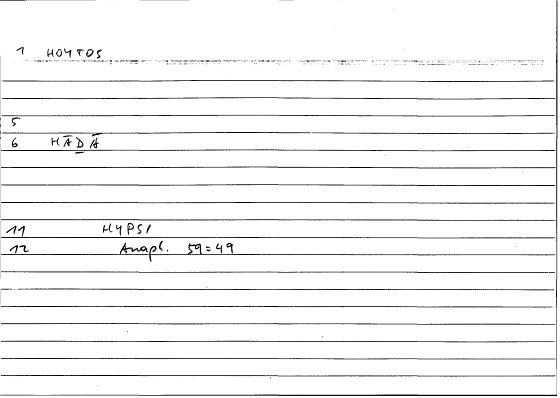 1 HOYTOS
5
6 HĀD̲Ā
11 HYPSI
12 Anapl. 59=49